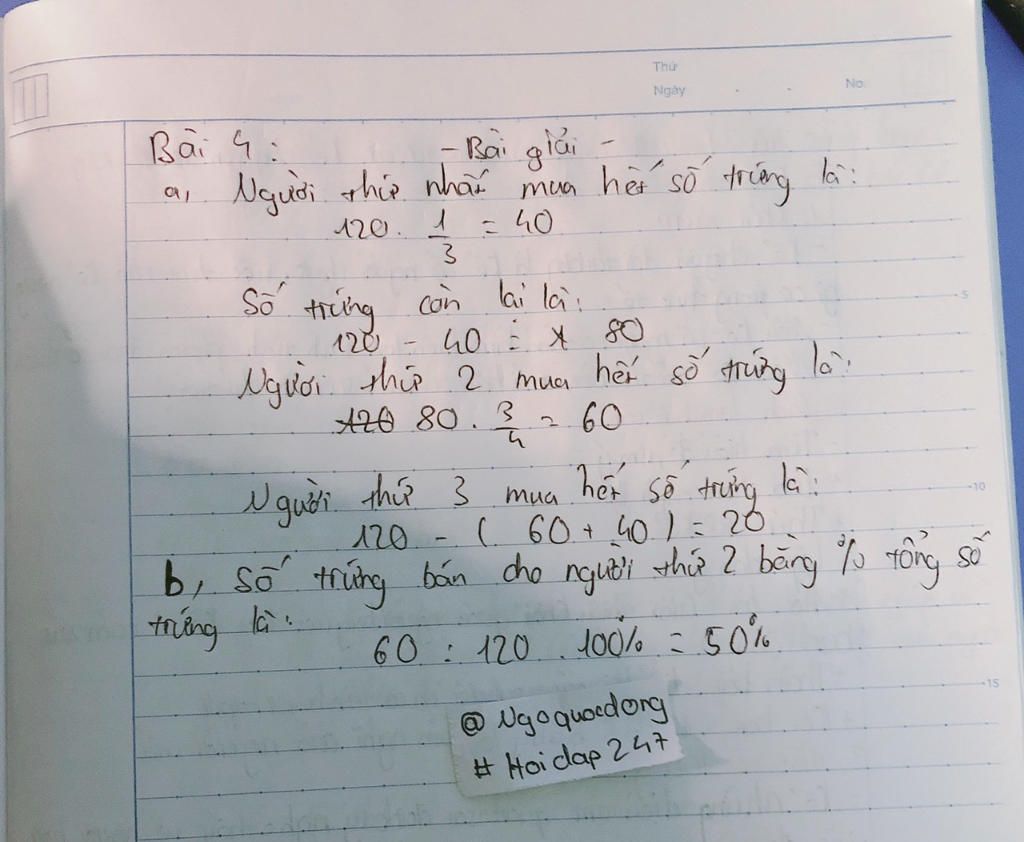 Thứ
Ngày . . No.
Bài 4: - Bài giải -
a, Người thứ nhất mua hết số trứng là:
120 . 1/3 = 40
Số trứng còn lại là:
120 - 40 = 80
5
Người thứ 2 mua hết số trứng là:
120 80 . 3/4 = 60
Người thứ 3 mua hết số trứng là:
10
120 - ( 60 + 40 ) = 20
b, Số trứng bán cho người thứ 2 bằng % tổng số
trứng là:
60 : 120 . 100% = 50%
15
@ Ngoquocdong
# Hoidap 247